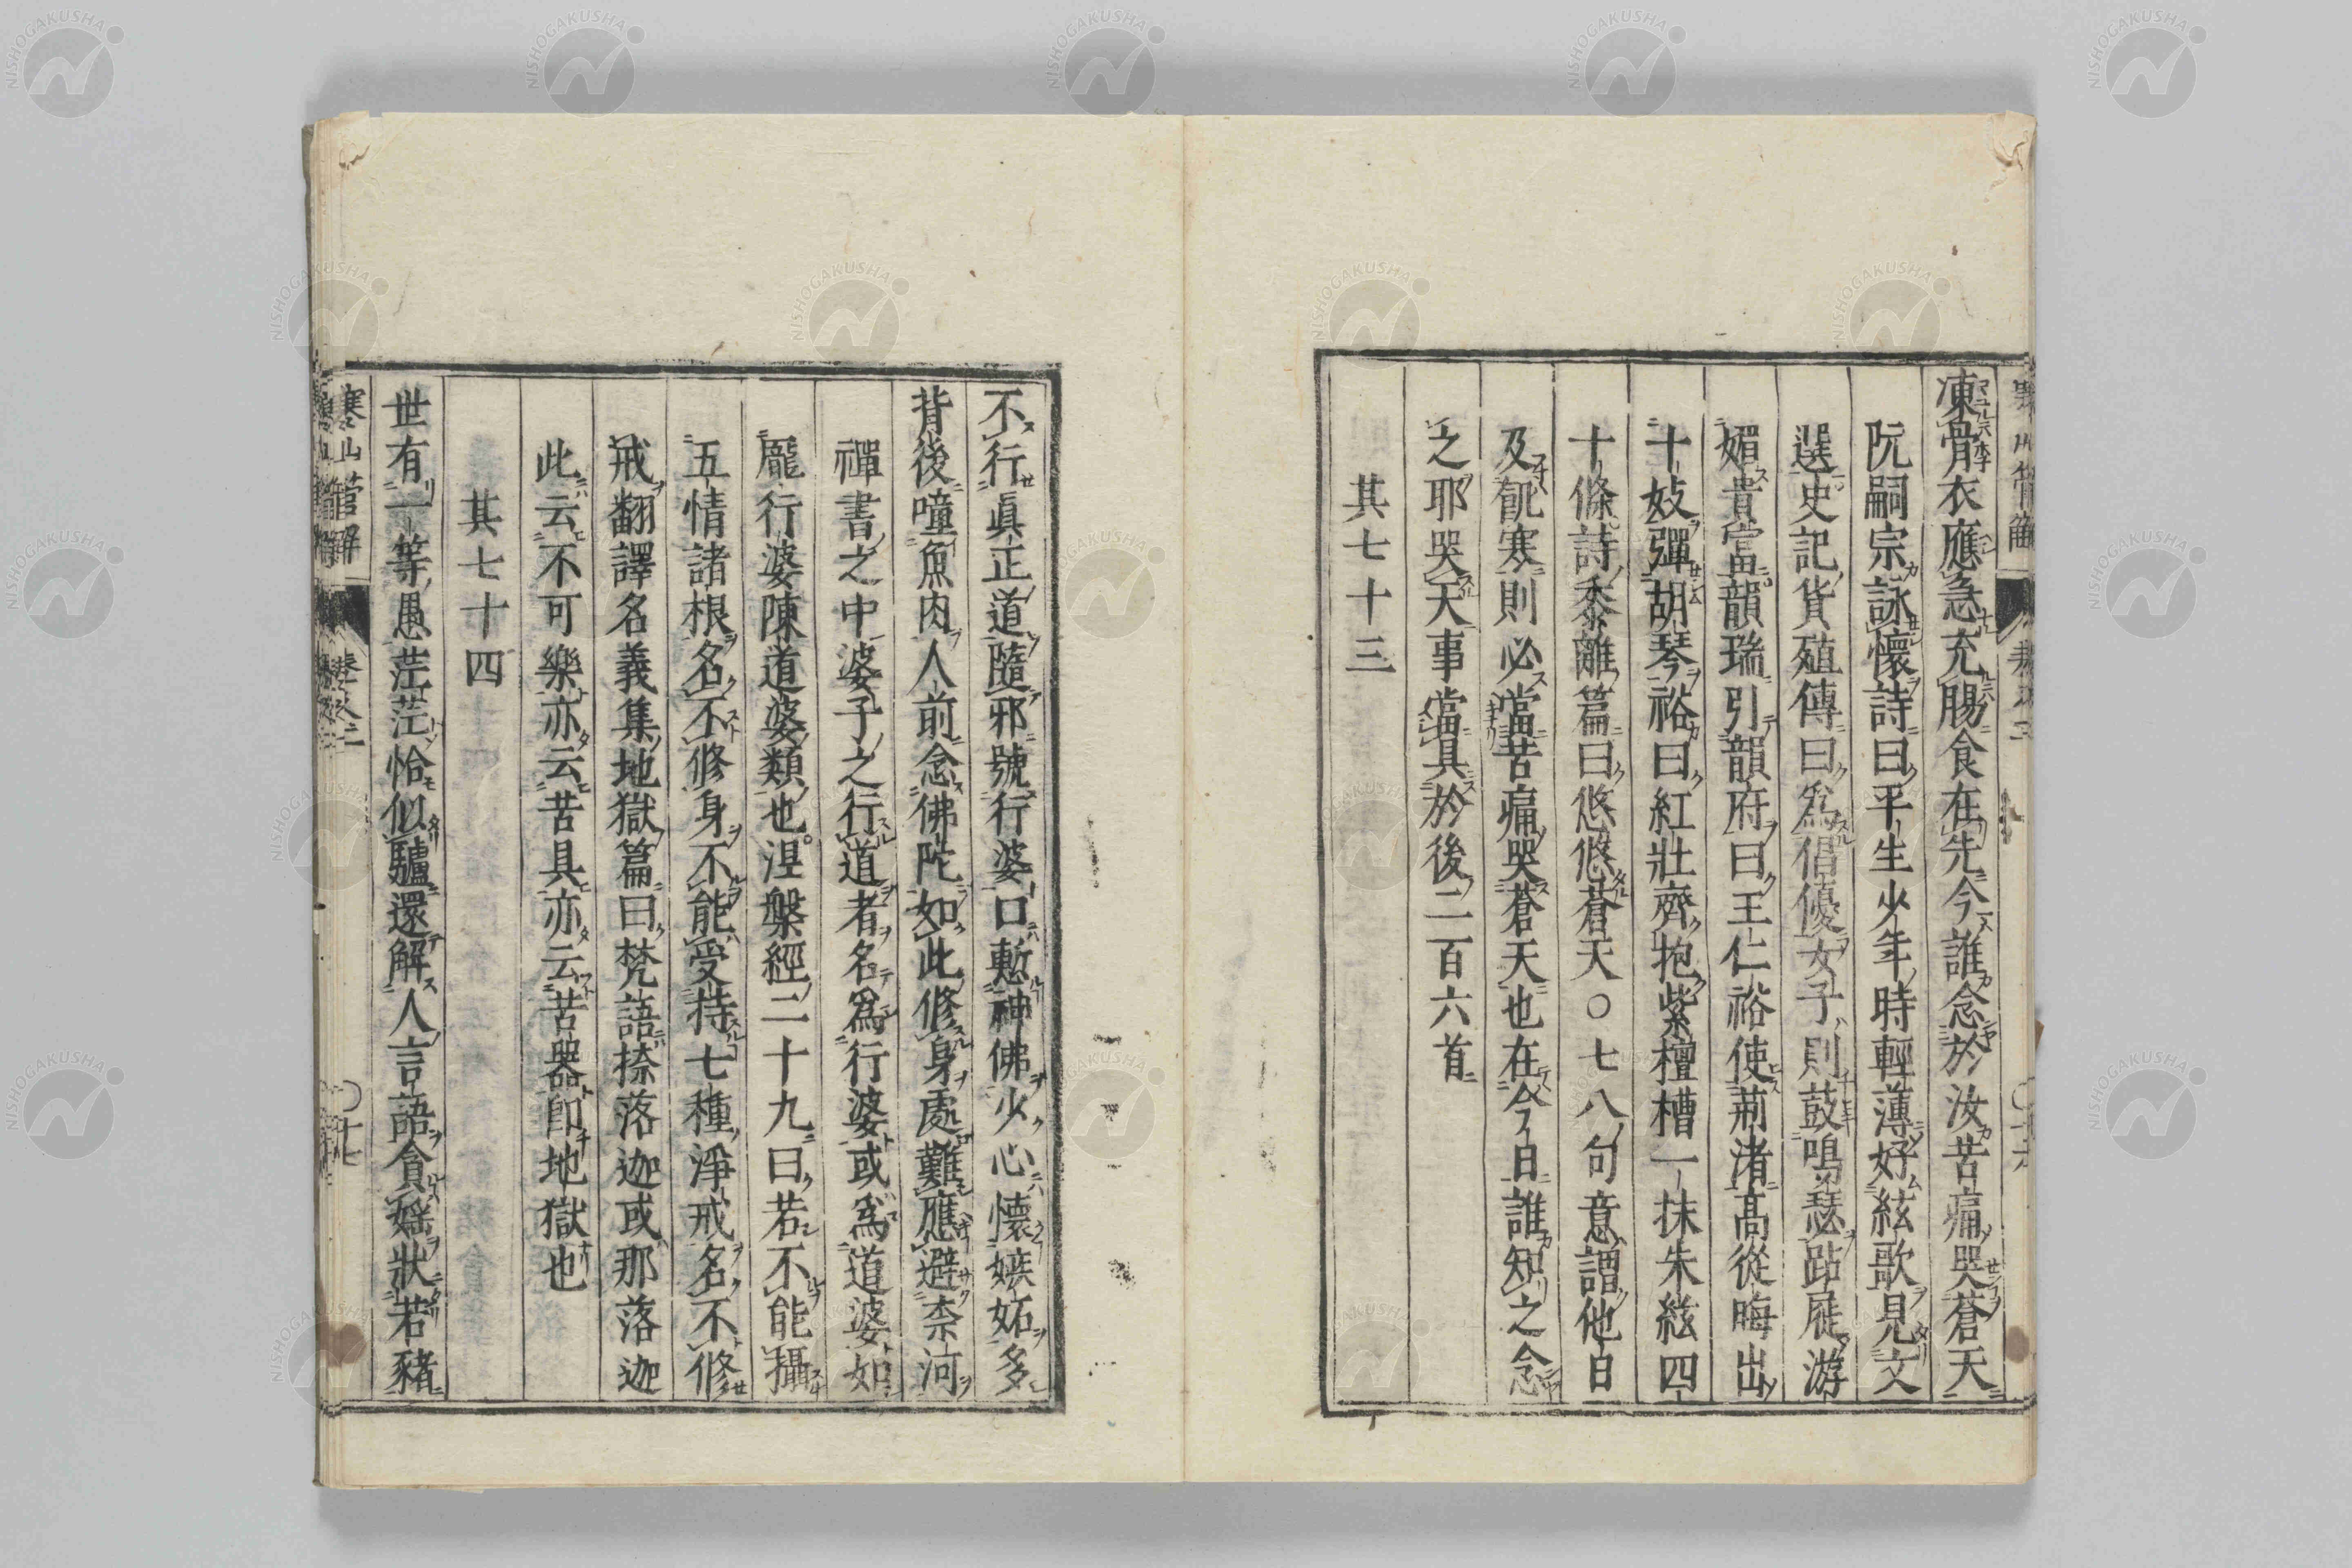 凍骨衣應急充賜食在先今誰念於汝苦痛哭蒼天
阮嗣宗詠懷詩曰平生少年時輕薄好絃歌見文
選史記貨殖傳曰爲倡優女子則鼓鳴瑟跕屣游
媚貴當韻瑞引韻府曰王仁裕使荊渚高從晦出
十妓彈胡琴裕曰紅壯齊抱紫檀槽一抹朱絃四
十條詩黍離篇曰悠悠蒼天○七八句意謂他日
及飢寒則必當苦痛哭蒼天也在今日誰知之念
之耶哭天事當具於後二百六首
其七十三
不行眞正道隨邪號行婆口慙神佛少心懷嫉妬多
背後噇魚肉人前念佛陀如此修身處難應避柰河
禪書之中婆子之行道者名爲行婆或爲道婆如
龐行婆陳道婆類也涅槃經二十九曰若不能攝
五情諸根名不修身不能受持七種淨戒名不修
戒翻譯名義集地獄篇曰梵語捺落迦或那落迦
此云不可樂亦云苦具亦云苦器卽地獄也
其七十四
世有一等愚茫茫恰似驢還解人言語貪婬狀若豬
寒山詩管解 卷之二 ○十七